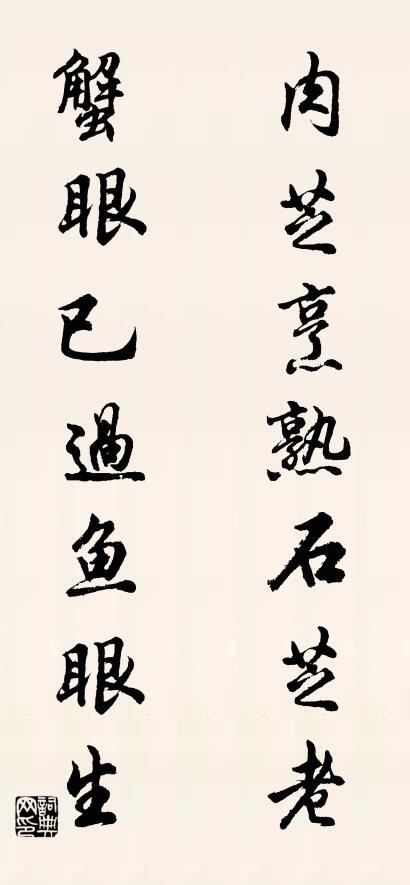 肉芝烹熟石芝老
蟹眼已過鱼眼生
詞典网印